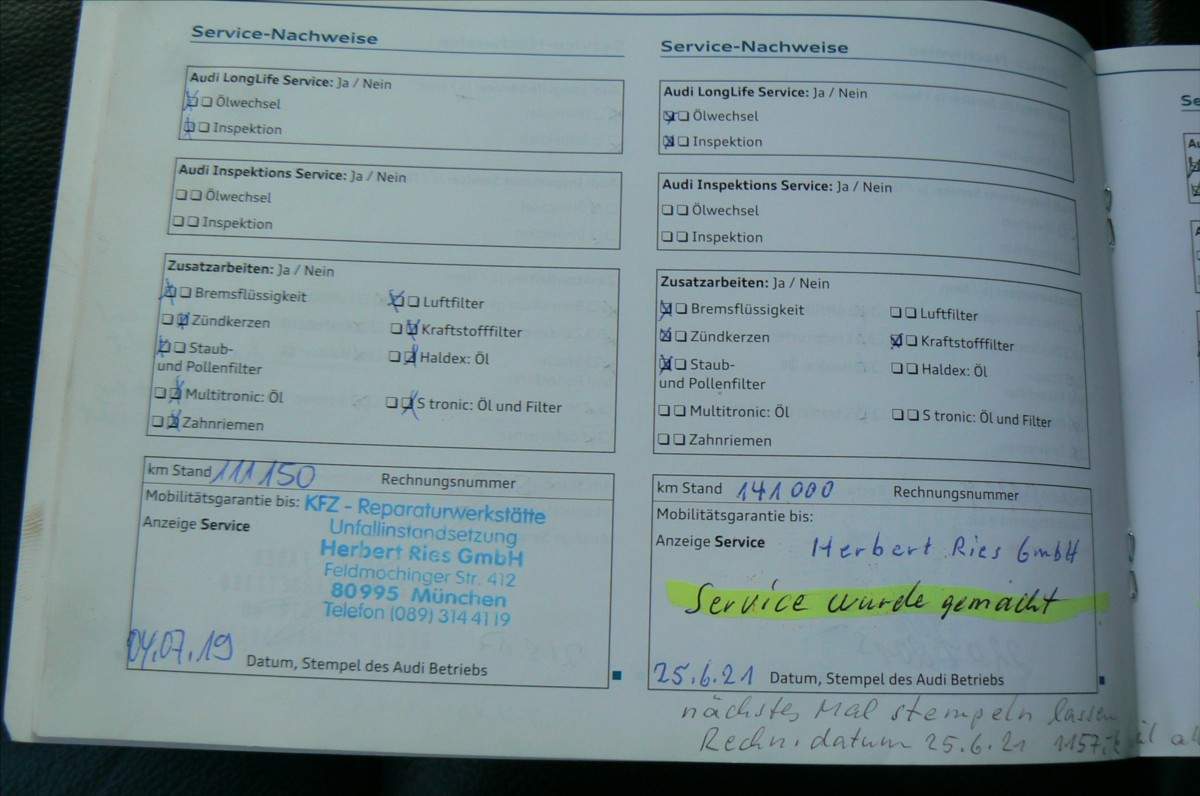 Service-Nachweise
Audi LongLife Service: Ja / Nein
Ölwechsel
Inspektion
Audi Inspektions Service: Ja / Nein
Ölwechsel
Inspektion
Zusatzarbeiten: Ja / Nein
Bremsflüssigkeit
Luftfilter
Zündkerzen
Kraftstofffilter
Staub-
und Pollenfilter
Haldex: Öl
Multitronic: Öl
S tronic: Öl und Filter
Zahnriemen
km Stand 111150
Rechnungsnummer
Mobilitätsgarantie bis:
Anzeige Service
KFZ - Reparaturwerkstätte
Unfallinstandsetzung
Herbert Ries GmbH
Feldmochinger Str. 412
80995 München
Telefon (089) 314 41 19
04.07.19
Datum, Stempel des Audi Betriebs
Service-Nachweise
Audi LongLife Service: Ja / Nein
Ölwechsel
Inspektion
Audi Inspektions Service: Ja / Nein
Ölwechsel
Inspektion
Zusatzarbeiten: Ja / Nein
Bremsflüssigkeit
Luftfilter
Zündkerzen
Kraftstofffilter
Staub-
und Pollenfilter
Haldex: Öl
Multitronic: Öl
S tronic: Öl und Filter
Zahnriemen
km Stand 141000
Rechnungsnummer
Mobilitätsgarantie bis:
Anzeige Service
Herbert Ries GmbH
Service wurde gemacht
25.6.21
Datum, Stempel des Audi Betriebs
nächstes Mal stempeln lassen
Rechn.datum 25.6.21